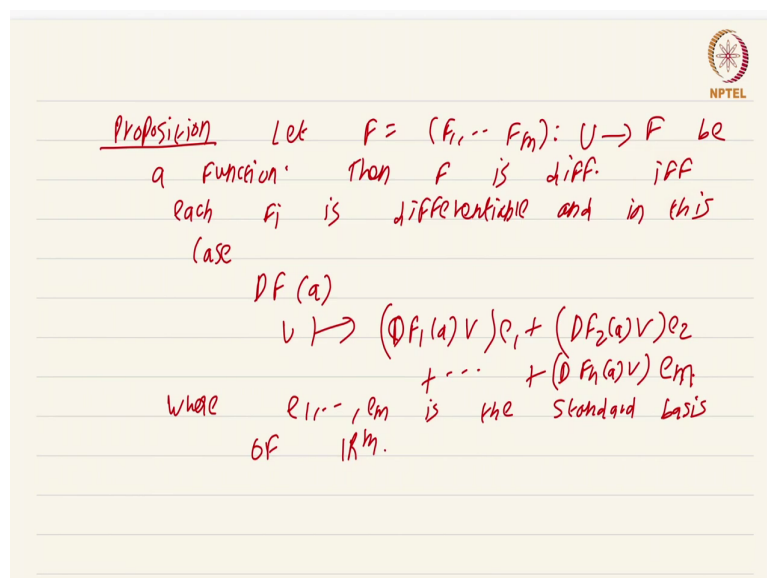 NPTEL
Proposition Let F = (F1, ... Fm): U → F be
a function. Then F is diff. iff
each Fi is differentiable and in this
Case
DF(a)
v ↦ (DF1(a)v)e1 + (DF2(a)v)e2
+ ... + (DFn(a)v) em.
Where e1, ..., em is the standard basis
OF IR^m.